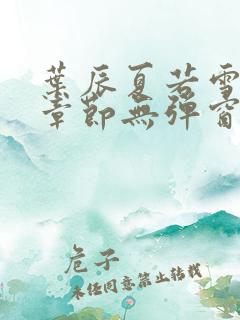 葉辰夏若雪
章節無彈窗
危子
未经同意禁止转载